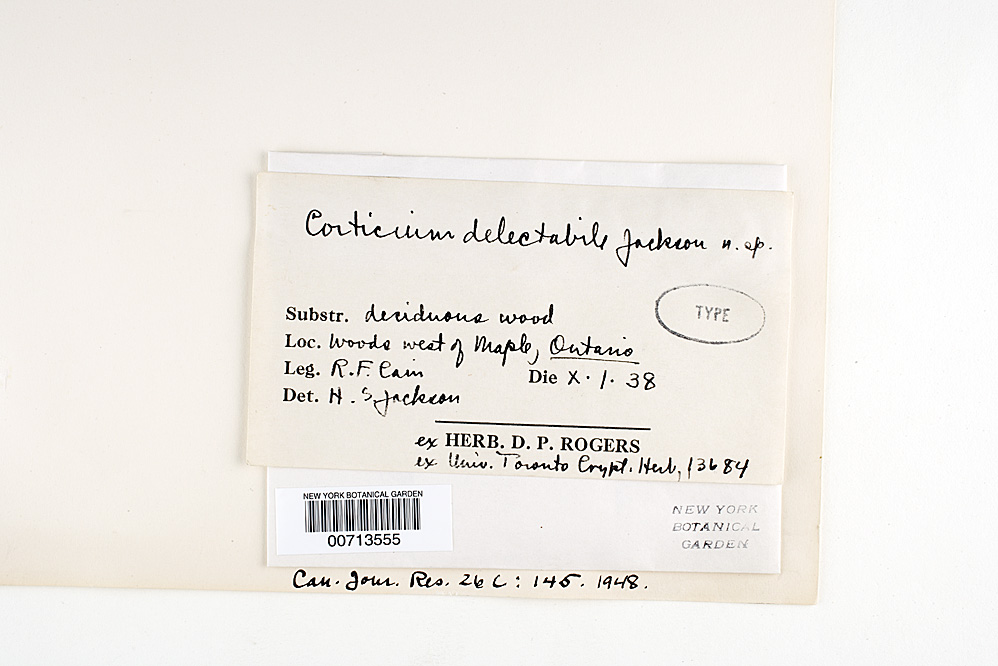 Corticium delectabile Jackson n. sp.
TYPE
Substr. deciduous wood
Loc. Woods west of Maple, Ontario
Leg. R. F. Cain Die X. 1. 38
Det. H. S. Jackson
ex HERB. D. P. ROGERS
ex Univ. Toronto Crypt. Herb, 13684
NEW YORK BOTANICAL GARDEN
00713555
NEW YORK
BOTANICAL
GARDEN
Can. Jour. Res. 26 C: 145. 1948.